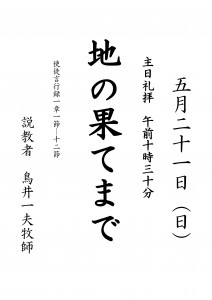 五月二十一日（日）
主日礼拝　午前十時三十分
地の果てまで
使徒言行録一章一節―十二節
説教者　鳥井一夫牧師